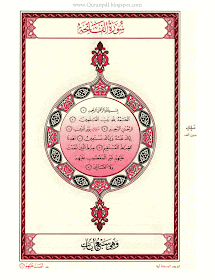 www.Quranpdf.blogspot.com
سورة الفاتحة
بسم الله الرحمن الرحيم
الحمد لله رب العالمين
الرحمن الرحيم ملك يوم الدين
إياك نعبد وإياك نستعين اهدنا
الصراط المستقيم صراط الذين أنعمت
عليهم غير المغضوب عليهم
ولا الضالين
وهي سبع آيات